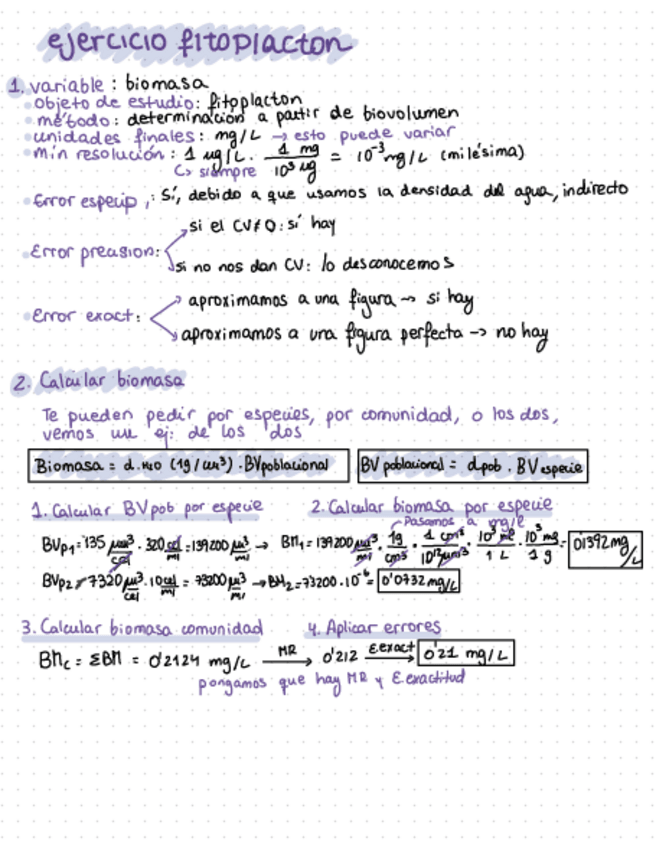 ejercicio fitoplacton
1. variable : biomasa
objeto de estudio: fitoplacton
método: determinación a partir de biovolumen
unidades finales: mg/L → esto puede variar
min resolución : 1 ug/L · 1 mg / 10³ ug = 10⁻³ mg/L (milésima)
↳ siempre
Error especip ,: Sí, debido a que usamos la densidad del agua, indirecto
Error precision:
si el CV≠0: sí hay
si no nos dan CV: lo desconocemos
Error exact:
aproximamos a una figura → si hay
aproximamos a una figura perfecta → no hay
2. Calcular biomasa
Te pueden pedir por especies, por comunidad, o los dos,
vemos un ej: de los dos
Biomasa = d.H2O (1g/cm³) . BVpoblacional
BV poblacional = dpob . BV especie
1. Calcular BV pob por especie
2. Calcular biomasa por especie
Pasamos a mg/L
BVp1 = 435 µm³/cel · 320 cel/ml = 139200 µm³/ml → BM1 = 139200 µm³/ml · 1g/cm³ · 1 cm³/10¹² µm³ · 10³ ml/1 L · 10³ mg/1 g = 0'1392 mg/L
BVp2 = 7320 µm³/cel · 10 cel/ml = 73200 µm³/ml → BM2 = 73200 · 10⁻⁶ = 0'0732 mg/L
3. Calcular biomasa comunidad
4. Aplicar errores
BMc = ΣBM = 0'2124 mg/L MR → 0'212 E.exact → 0'21 mg/L
pongamos que hay MR y E.exactitud